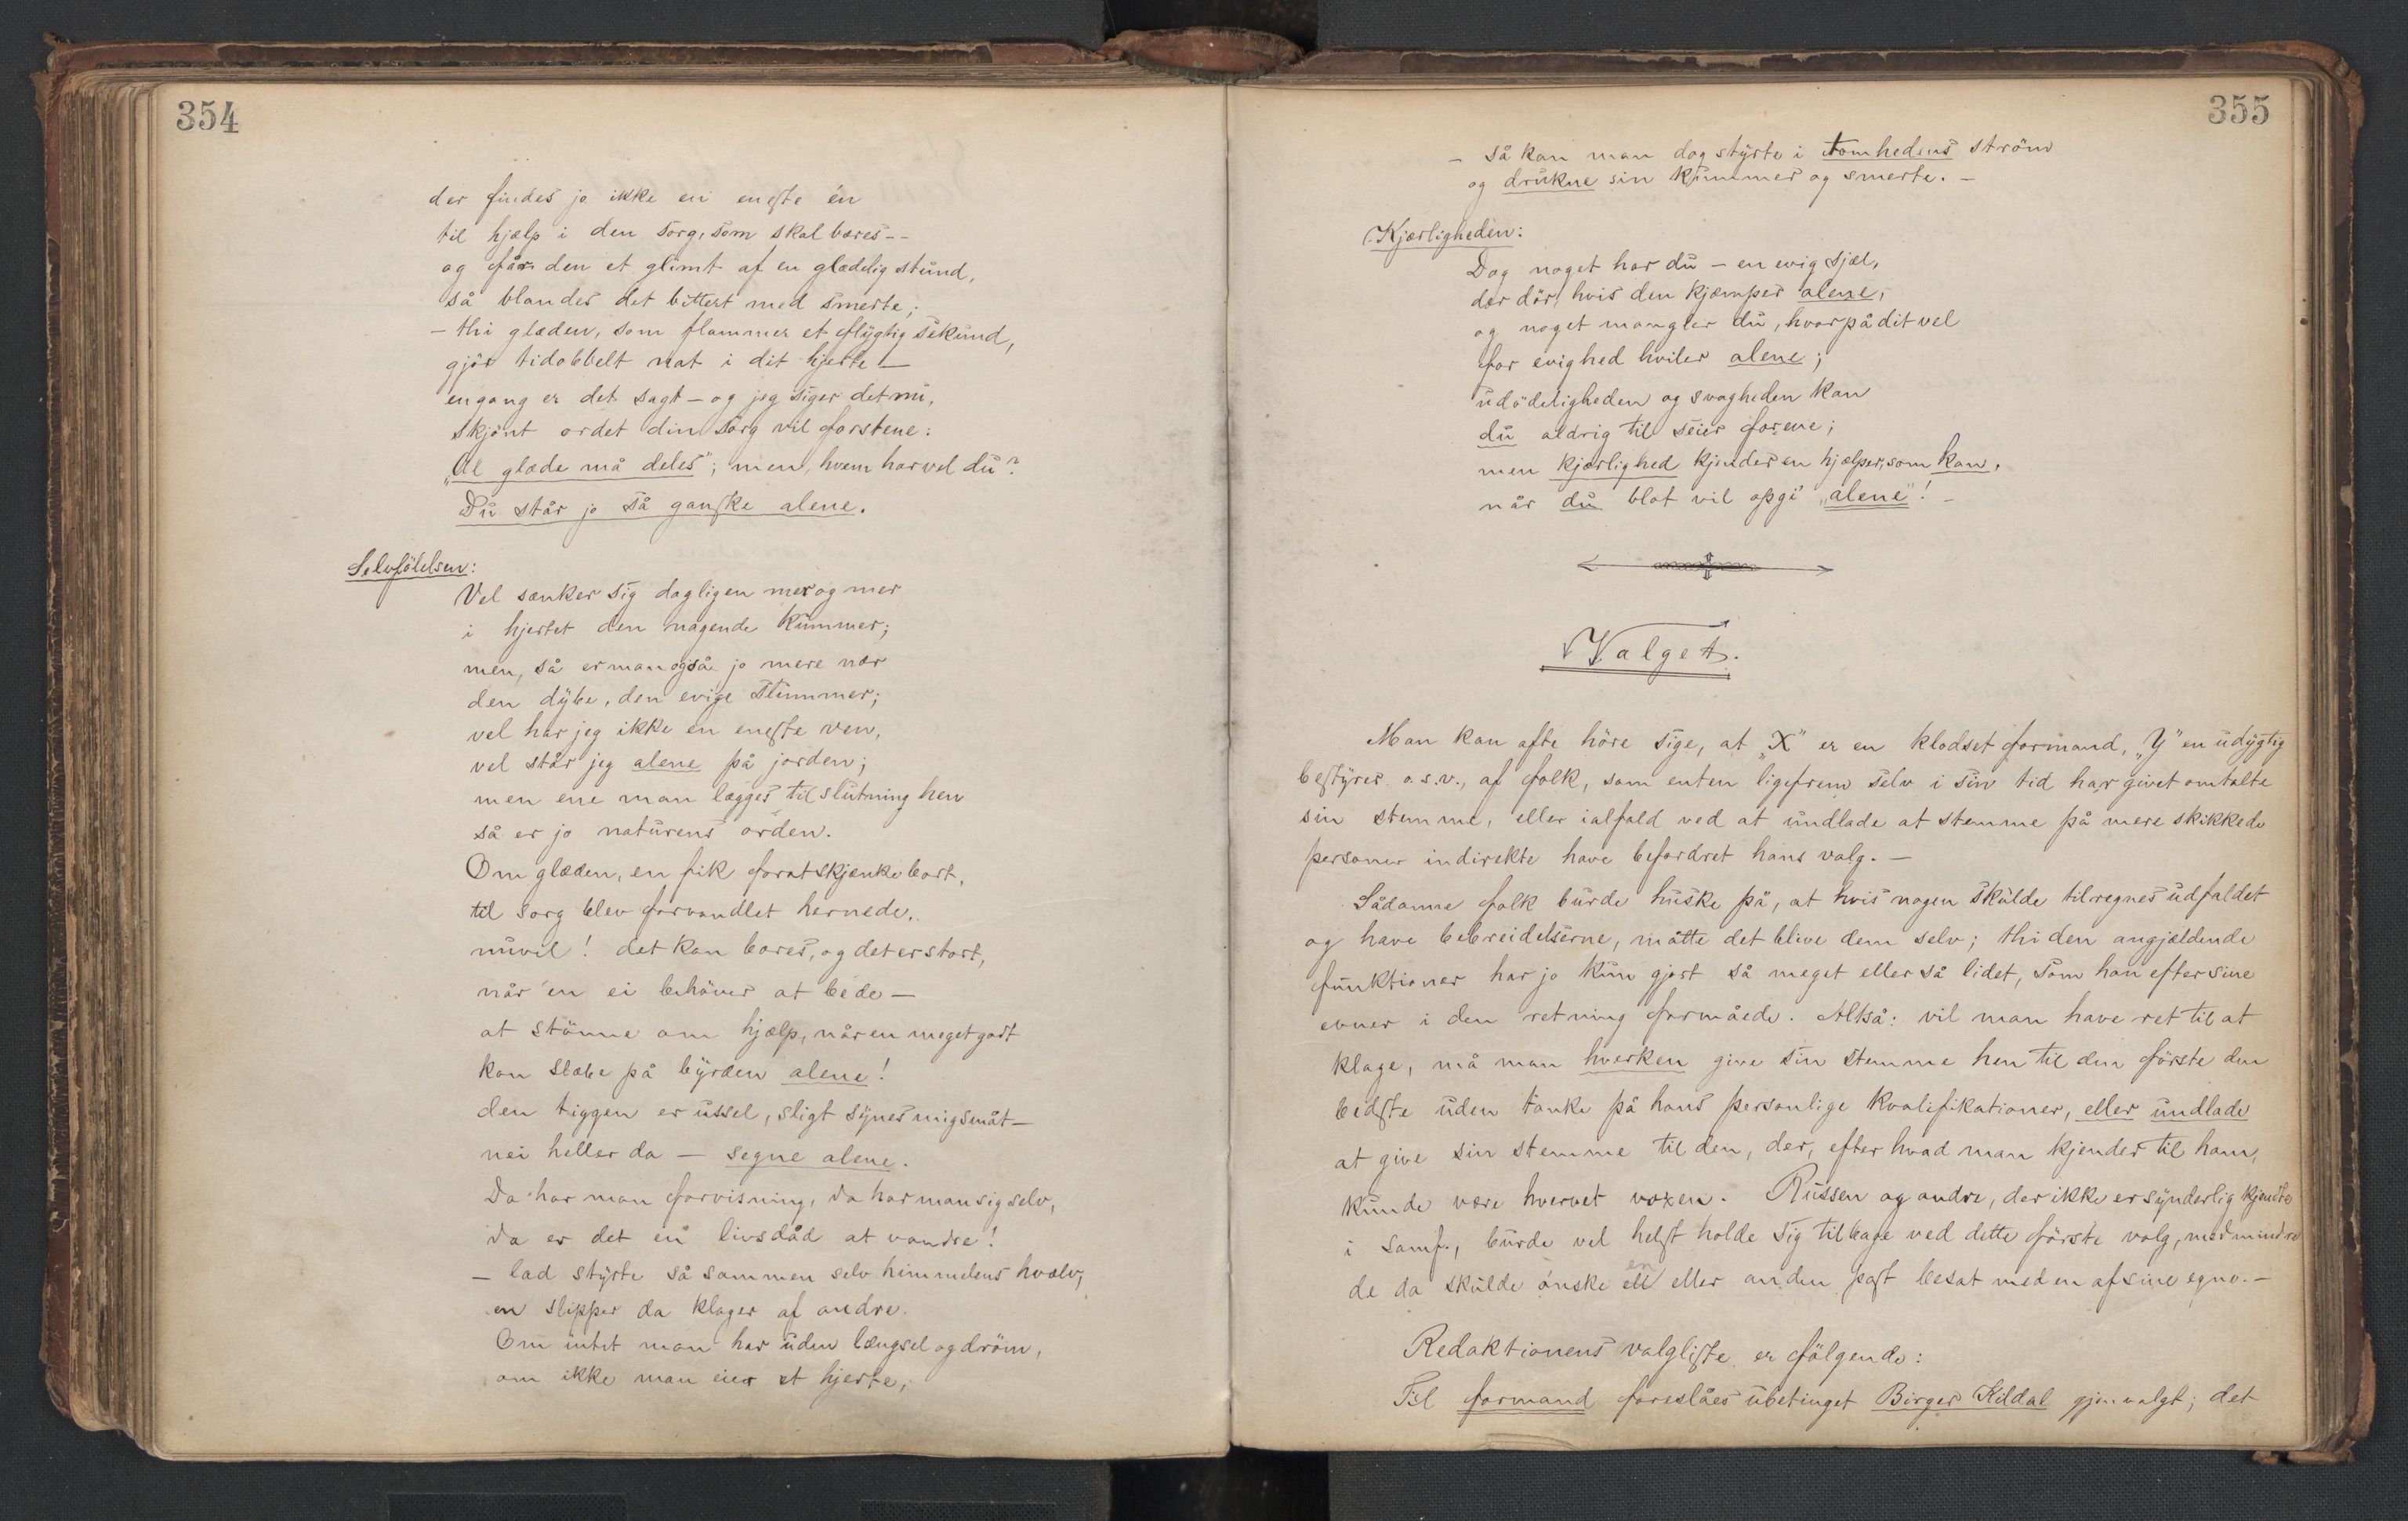 354
der findes jo ikke en eneste én
til hjælp i den sorg, som skal bæres--
og får den et glimt af en glædelig stund,
så blandes det bittert med smerte;
- thi glæden, som flammer et flygtig sekund,
gjör tidobbelt nat i dit hjerte —
engang er det sagt - og jeg siger det nu,
skjönt ordet din sorg vil forstene:
"Al glæde må deles"; men, hvem har vel du?
Du står jo så ganske alene.
Selvfölelsen:
Vel sænker sig dagligen mer og mer
i hjertet den nagende kummer;
men, så er man også jo mere nær
den dybe, den evige slummer;
vel har jeg ikke en eneste ven,
vel står jeg alene på jorden;
men ene man lægges til slutning hen
så er jo naturens orden.
Om glæden, en fik for at skjænke bort,
til sorg blev forvandlet hernede,
nuvel! det kan bæres, og det er stort,
når en ei behöver at bede —
at stönne om hjælp, når en meget godt
kan slæbe på byrden alene!
den tiggen er ussel, sligt synes mig småt —
nei heller da — segne alene.
Da har man forvisning, da har man sig selv,
da er det en livsdåd at vandre!
— lad styrte så sammen selv himmelens hvælv,
en slipper da klager af andre.
Om intet man har uden længsel og dröm,
om ikke man eier et hjerte,
355
- så kan man dog styrte i tomhedens ström
og drukne sin kummer og smerte. -
Kjærligheden:
Dog noget har du - en evig sjæl,
der dör, hvis den kjæmper alene,
og noget mangler du, hvorpå dit vel
for evighed hviler alene;
udödeligheden og svagheden kan
du aldrig til seier forene;
men kjærlighed kjender en hjælper, som kan,
når du blot vil opgi "alene"! -
Valget.
Man kan ofte höre sige, at "X" er en klodset formand, "Y" en udygtig
bestyrer o.s.v., af folk, som enten ligefrem selv i sin tid har givet omtalte
sin stemme, eller ialfald ved at undlade at stemme på mere skikkede
personer indirekte have befordret hans valg. —
Sådanne folk burde huske på, at hvis nogen skulde tilregnes udfaldet
og have bebreidelserne, måtte det blive dem selv; thi den angjældende
funktionær har jo kun gjort så meget eller så lidet, som han efter sine
evner i den retning formåede. Altså: vil man have ret til at
klage, må man hverken give sin stemme hen til den förste den
bedste uden tanke på hans personlige kvalifikationer, eller undlade
at give sin stemme til den, der, efter hvad man kjender til ham,
kunde være hvervet voxen. Russen og andre, der ikke er synderlig kjendte
i Samf., burde vel helst holde sig tilbage ved dette förste valg, medmindre
de da skulde önske en eller anden post besat med en af sine egne. —
Redaktionens valgliste er fölgende:
Til formand foreslåes ubetinget Birger Kildal gjenvalgt; det